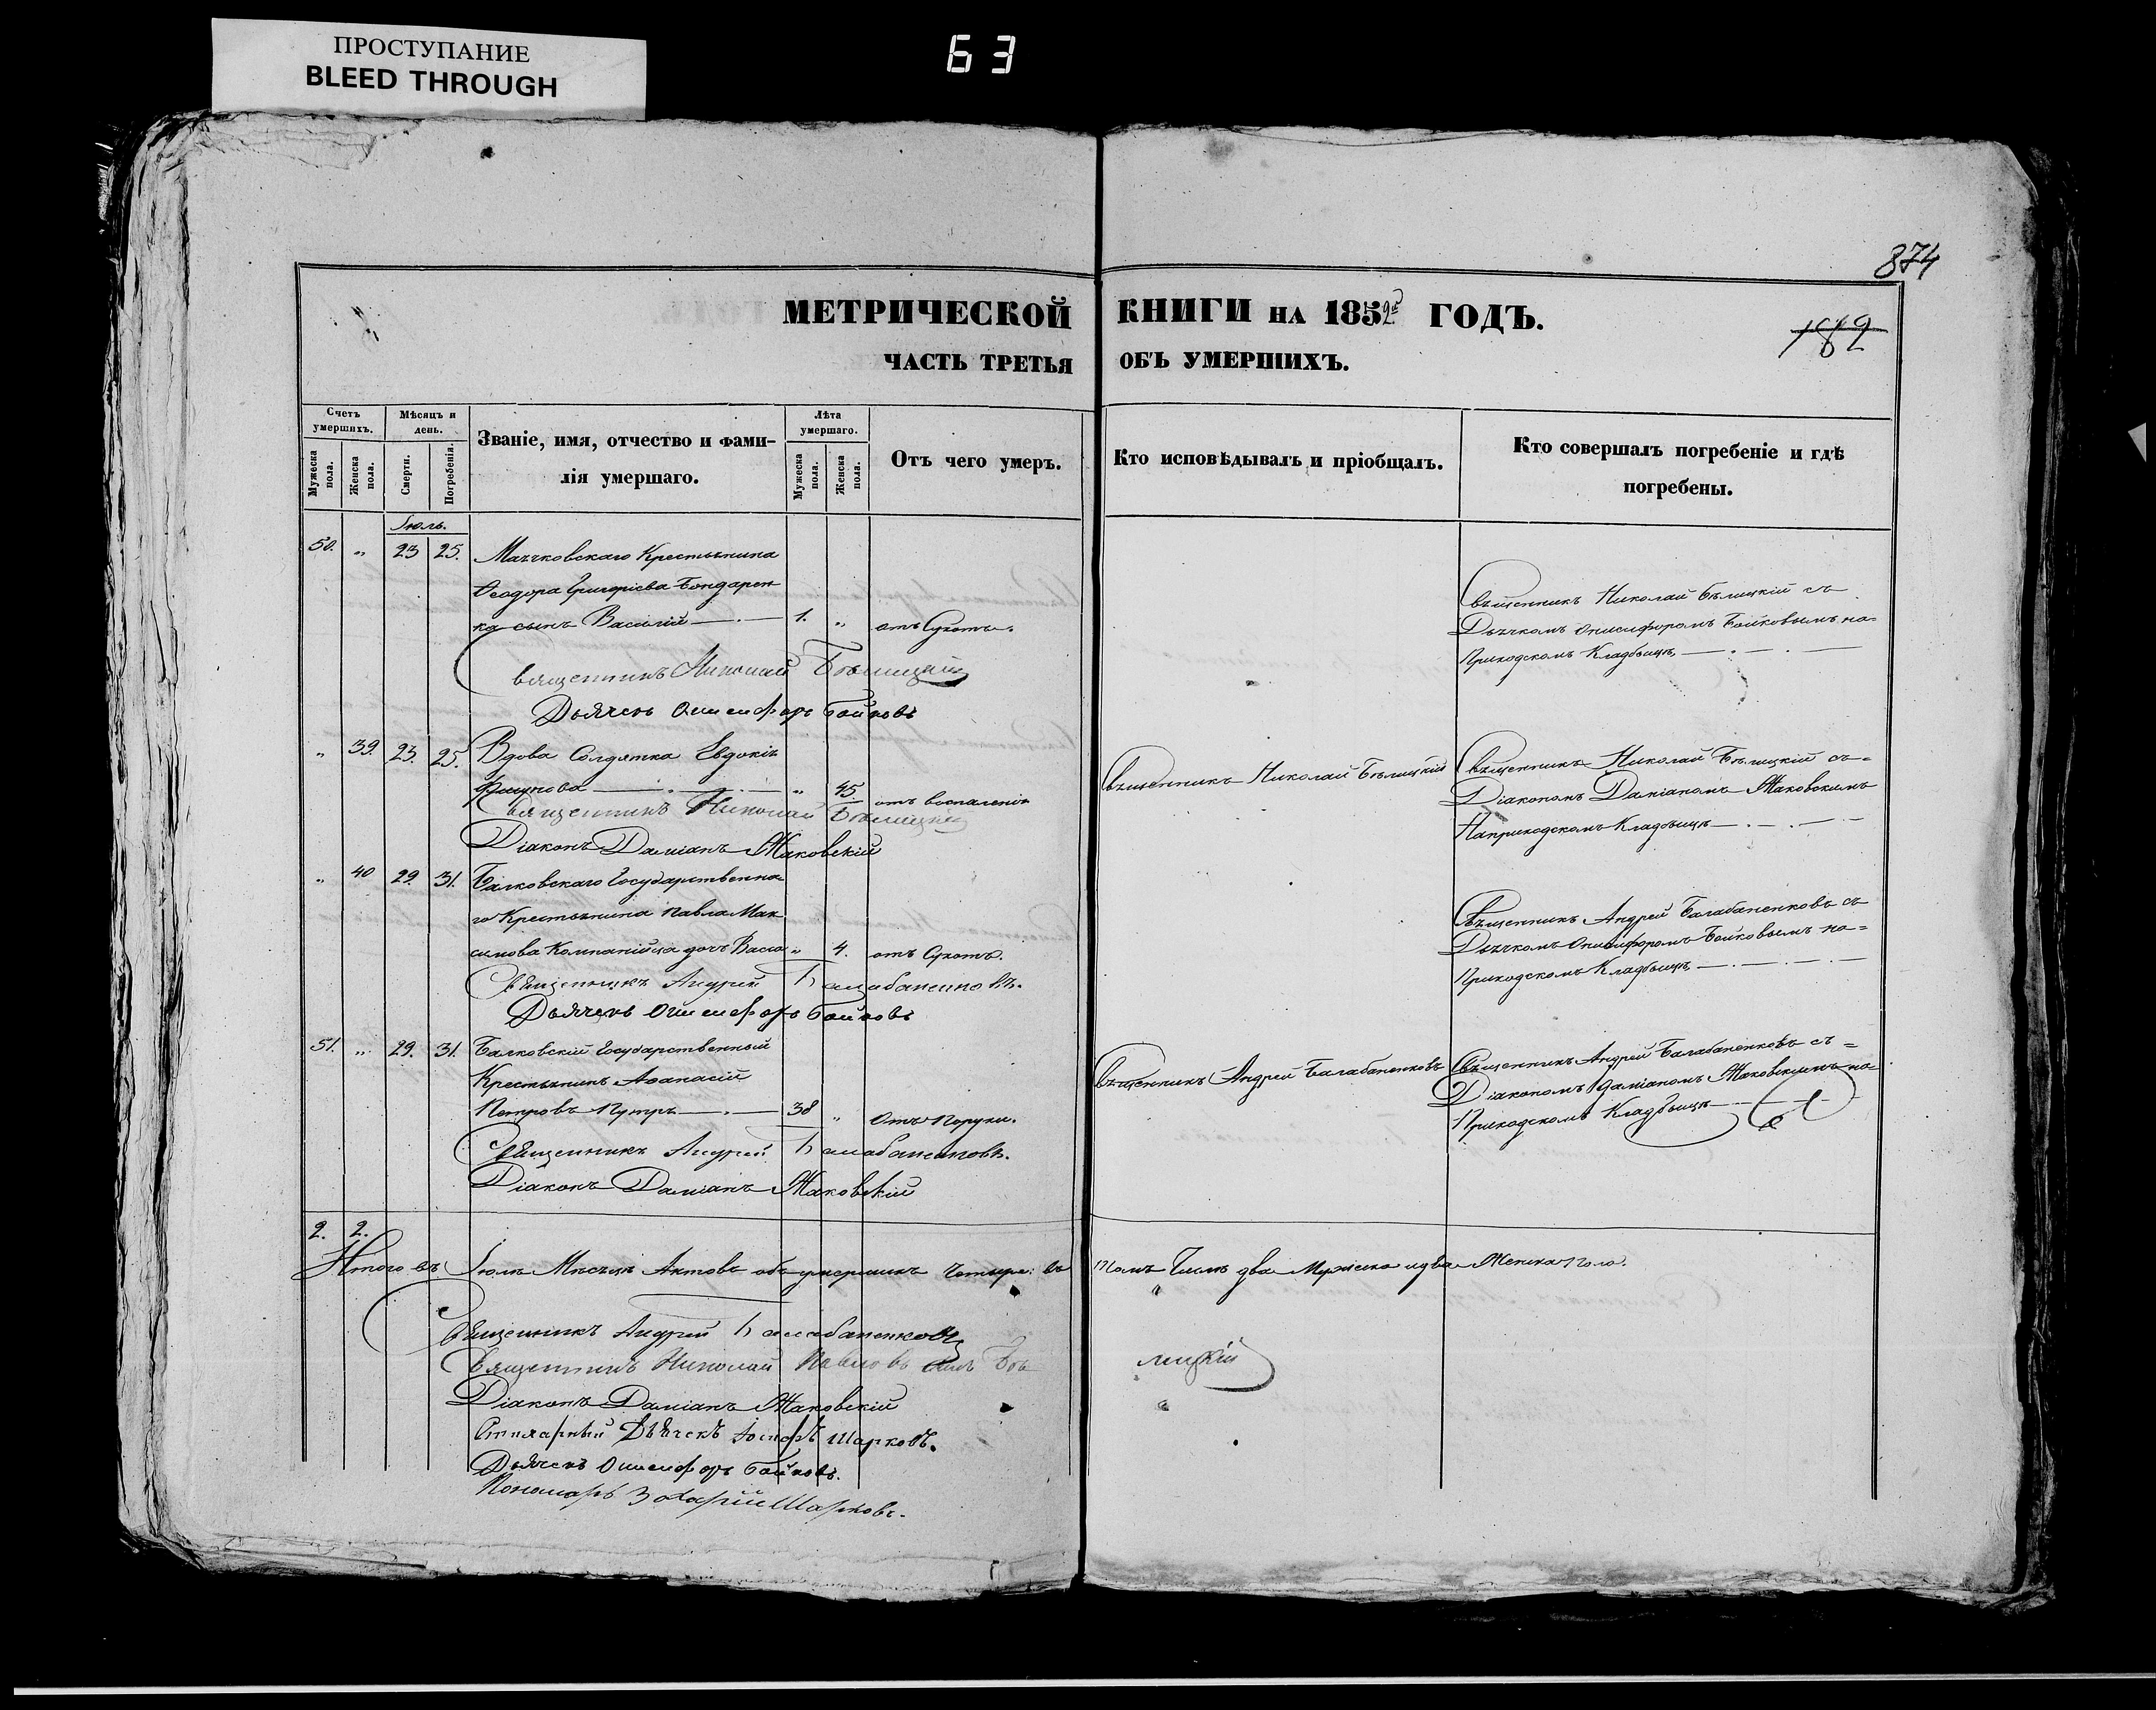 ПРОСТУПАНИЕ
BLEED THROUGH
63
874
МЕТРИЧЕСКОЙ КНИГИ НА 1852й ГОДЪ.
182
ЧАСТЬ ТРЕТЬЯ ОБЪ УМЕРШИХЪ.
Счетъ умершихъ.
Мужеска пола.
Женска пола.
Мѣсяцъ и день.
Смерти.
Погребенія.
Званіе, имя, отчество и фами-
лія умершаго.
Лѣта умершаго.
Мужеска пола.
Женска пола.
Отъ чего умеръ.
Кто исповѣдывалъ и пріобщалъ.
Кто совершалъ погребеніе и гдѣ
погребены.
Іюль.
50. „ 23 25. Мачковскаго Крестьянина
Ѳеодора Григоріева Бондарен
ка сынъ Василій 1. „ отъ Сухотъ.
Священникъ Николай Бѣлицкій съ
Дьячкомъ Онисифоромъ Бойковымъ на=
Приходскомъ Кладбищѣ
Священникъ Николай Бѣлицкій
Дьячекъ Онисифоръ Бойковъ
„ 39. 23. 25. Вдова Солдатка Евдокія
„ 45 отъ воспаленія
Священникъ Николай Бѣлицкій
Священникъ Николай Бѣлицкій съ=
Діакономъ Даміаномъ Маковскимъ
На приходскомъ Кладбищѣ
Священникъ Николай Бѣлицкій
Діаконъ Даміанъ Маковскій
„ 40 29. 31. Балковскаго Государственна
го Крестьянина Павла Мак
симова Компанійца дочь Васса „ 4. отъ Сухотъ.
Священникъ Андрей Балабаненковъ съ
Дьячкомъ Онисифоромъ Бойковымъ на=
Приходскомъ Кладбищѣ
Священникъ Андрей Балабаненковъ.
Дьячекъ Онисифоръ Бойковъ
51. „ 29. 31. Балковскій Государственный
Крестьянинъ Аѳанасій
Петровъ 38 „ Отъ
Священникъ Андрей Балабаненковъ
Священникъ Андрей Балабаненковъ съ=
Діакономъ Даміаномъ Маковскимъ на
Приходскомъ Кладбищѣ
Священникъ Андрей Балабаненковъ.
Діаконъ Даміанъ Маковскій
2. 2.
Итого въ Іюлѣ Мѣсяцѣ Актовъ объ умершихъ Четыре: въ томъ Числѣ два Мужеска и два Женска Пола.
Священникъ Андрей Балабаненковъ
Священникъ Николай Павловъ сынъ Бѣлицкій
Діаконъ Даміанъ Маковскій
Дьячекъ Іосифъ Шарковъ.
Дьячекъ Онисифоръ Бойковъ.
Пономарь Захарій Шарковъ.